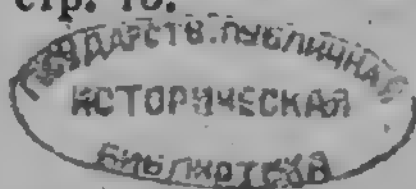 стр. 18.
ГОСУДАРСТВ. ПУБЛИЧНАЯ
ИСТОРИЧЕСКАЯ
БИБЛИОТЕКА